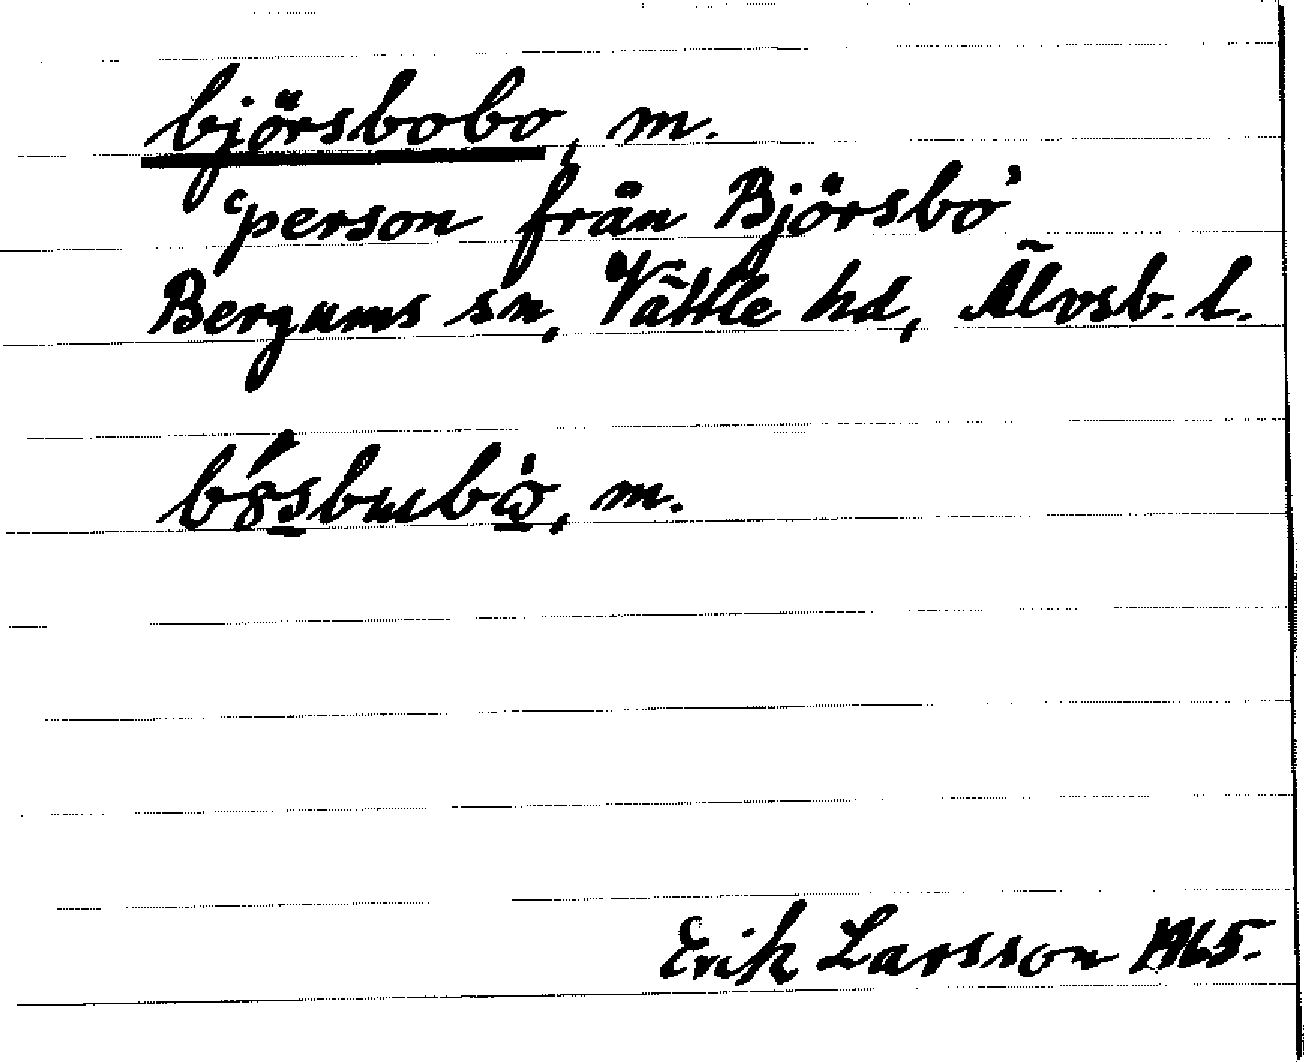 björsbobo, m.
‘person från Björsbo’
Bergums sn, Vättle hd, Älvsb. l.
m.
Erik Larsson 1965.